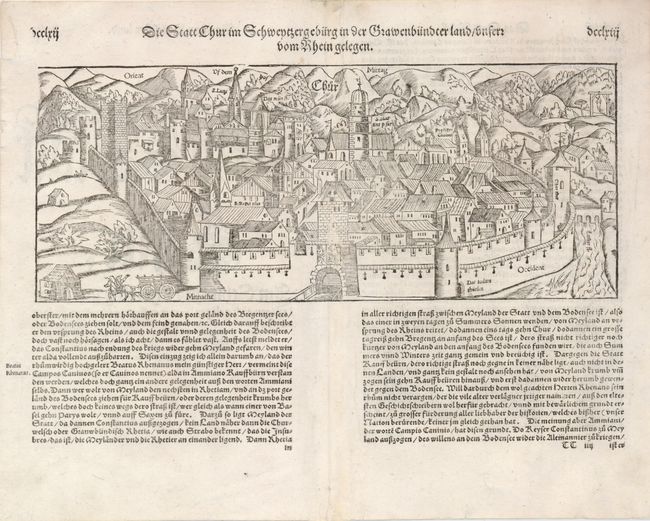 dcclxij
Die Statt Chur im Schweytzergebürg in der Grawenbündter land/vnferr
dcclxiij
vom Rhein gelegen.
Orient
Vf dem
S. Lutz
Chur
Mittag
Mitnacht
Occident
oberster/mit dem mehren hörhauffen an das port geländ des Bregentzer sees/
oder Bodensees ziehen solt/vnd dem feind genahen/ꝛc. Gleich darauff beschreibt
er den vrsprung des Rheins/auch die gestalt vnnd gelegenheit des Bodensees/
doch vast noch hörsagen/als ich acht/dann es fählet vast. Auffs letst meldet er/
das Constantius nach endung des kriegs wider gehn Meyland gefaren/den win
ter alda vollendt außzüharren. Disen einzug zeig ich allein darumb an/das der
rhümwirdig hochgelert Beatus Rhenanus mein günstiger Herr/vermeint die
Campos Caninos (so er Cauinos nennet) alda in Ammiano Raußbeüren verstan
den werden/welches doch gantz ein andere gelegenheit auß den worten Ammiani
selbs hat. Dann wer wolt von Meyland den nechsten ziehen/vnd an dz port ge
länd des Bodensees ziehen für Kauffbeüren/oder deren gelegenheit krumbs her
umb/welches doch keins wegs dero straß ist/wer gleich als wann einer von Ba-
sel gehn Paryß wolt/vnd auff Sagoy zü füre. Darzu so ligt Meyland der
Statt/da dannen Constantius außgezogen/kein Land näher dann die Chur
welsch oder Grawbündtisch Rhetia/wie auch Strabo bekennt/das die Insu-
bres/das ist/die Meyländer vnd die Rhetier an einander ligend. Dann Rhetia
in
Beatus
Rhenanus
in aller richtigen straß zwischen Meyland der Statt vnd dem Bodensee ist/also
das einer in zweyen tagen zü Summers Sonnen wenden/von Meyland an vr-
sprung des Rheins reitet/do dannen eins tags gehn Chur/do dannen ein grosse
tagreiß gehn Bregentz an anfang des Sees ist/dero straß nicht richtiger noch
kürtzer von Meyland an den anfang des Bodensees funden wirt/die auch Sum-
mers vnnd Winters zeit gantz gemein vnd breüchig ist. Dargegen die Statt
Kauffbeüren/dero richtige straß noch gegne in keiner nähe hat/auch nicht in de-
nen Landen/vnd gantz kein gestalt noch ansehen hat/von Meyland krumb vm̃
zogen sein gehn Kauffbeüren hinauß/vnd erst da dannen wider herumb gewen-
det gegen dem Bodensee. Will darumb dem wolgeachten Herren Rhenano sein
rhüm nicht verargen/der die vile alter verlägner jrriger namen/auß den eltes-
ten Geschichtschreibern wol herfür gebracht/vnnd mit bewärlichem grundt er-
scheint/zü grosser fürderung aller liebhaber der historien/welches bißher/vnser
Nation berürende/keiner jm gleich gethan hat. Die meinung aber Ammiani/
der wortet Campis Caninis/hat disen grundt. Do Keyser Constantius zü Mey
land außzogen/des willens an dem Bodensee wider die Alemannier zükriegen/
TT iiij
ist es